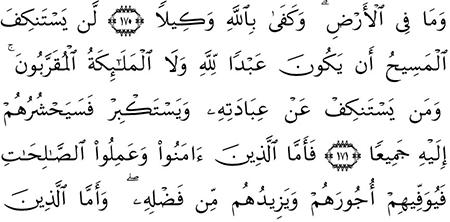 وَمَا فِى ٱلْأَرْضِ ۗ وَكَفَىٰ بِٱللَّهِ وَكِيلًا ﴿١٧٥﴾ لَّن يَسْتَنكِفَ
ٱلْمَسِيحُ أَن يَكُونَ عَبْدًا لِّلَّهِ وَلَا ٱلْمَلَـٰٓئِكَةُ ٱلْمُقَرَّبُونَ ۚ
وَمَن يَسْتَنكِفْ عَنْ عِبَادَتِهِۦ وَيَسْتَكْبِرْ فَسَيَحْشُرُهُمْ
إِلَيْهِ جَمِيعًا ﴿١٧٦﴾ فَأَمَّا ٱلَّذِينَ ءَامَنُوا۟ وَعَمِلُوا۟ ٱلصَّـٰلِحَـٰتِ
فَيُوَفِّيهِمْ أُجُورَهُمْ وَيَزِيدُهُم مِّن فَضْلِهِۦ ۖ وَأَمَّا ٱلَّذِينَ